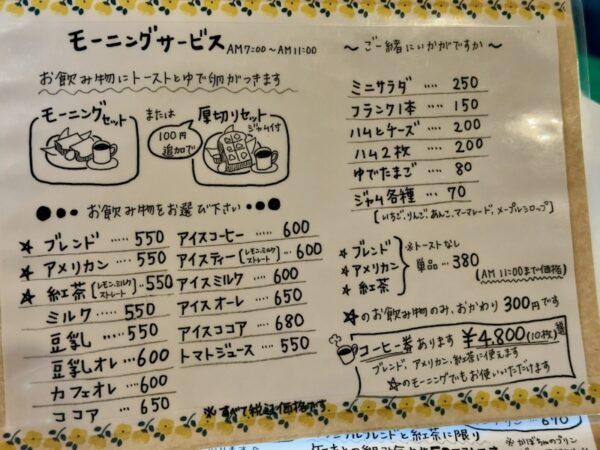 モーニングサービス AM7:00～AM11:00
お飲み物にトーストとゆで卵がつきます
モーニングセット
または
100円
追加で
厚切りセット
ジャム付
●●● お飲み物をお選び下さい ●●●
☆ ブレンド ‥‥ 550
☆ アメリカン ‥‥ 550
☆ 紅茶 [レモン、ミルク ストレート] ‥ 550
ミルク ‥‥ 550
豆乳 ‥‥ 550
豆乳オレ ‥‥ 600
カフェオレ ‥‥ 600
ココア ‥‥ 650
アイスコーヒー ‥‥ 600
アイスティー [レモン、ミルク ストレート] ‥ 600
アイスミルク ‥‥ 600
アイスオーレ ‥‥ 650
アイスココア ‥‥ 680
トマトジュース ‥‥ 550
※すべて税込価格です
～ご一緒にいかがですか～
ミニサラダ ‥‥ 250
フランク1本 ‥‥ 150
ハムとチーズ ‥‥ 200
ハム2枚 ‥‥ 200
ゆでたまご ‥‥ 80
ジャム各種 ‥‥ 70
[いちご、りんご、あんこ、マーマレード、メープルシロップ]
☆ ブレンド
☆ アメリカン
☆ 紅茶
※トーストなし
単品 ‥‥ 380
(AM11:00まで価格)
☆のお飲み物のみ、おかわり 300円です
コーヒー券あります ¥4,800 (10枚)
ブレンド、アメリカン、紅茶に使えます
☆のモーニングでもお使いいただけます
プリン 670
ブレンドと紅茶に限り
※かぼちゃのプリン